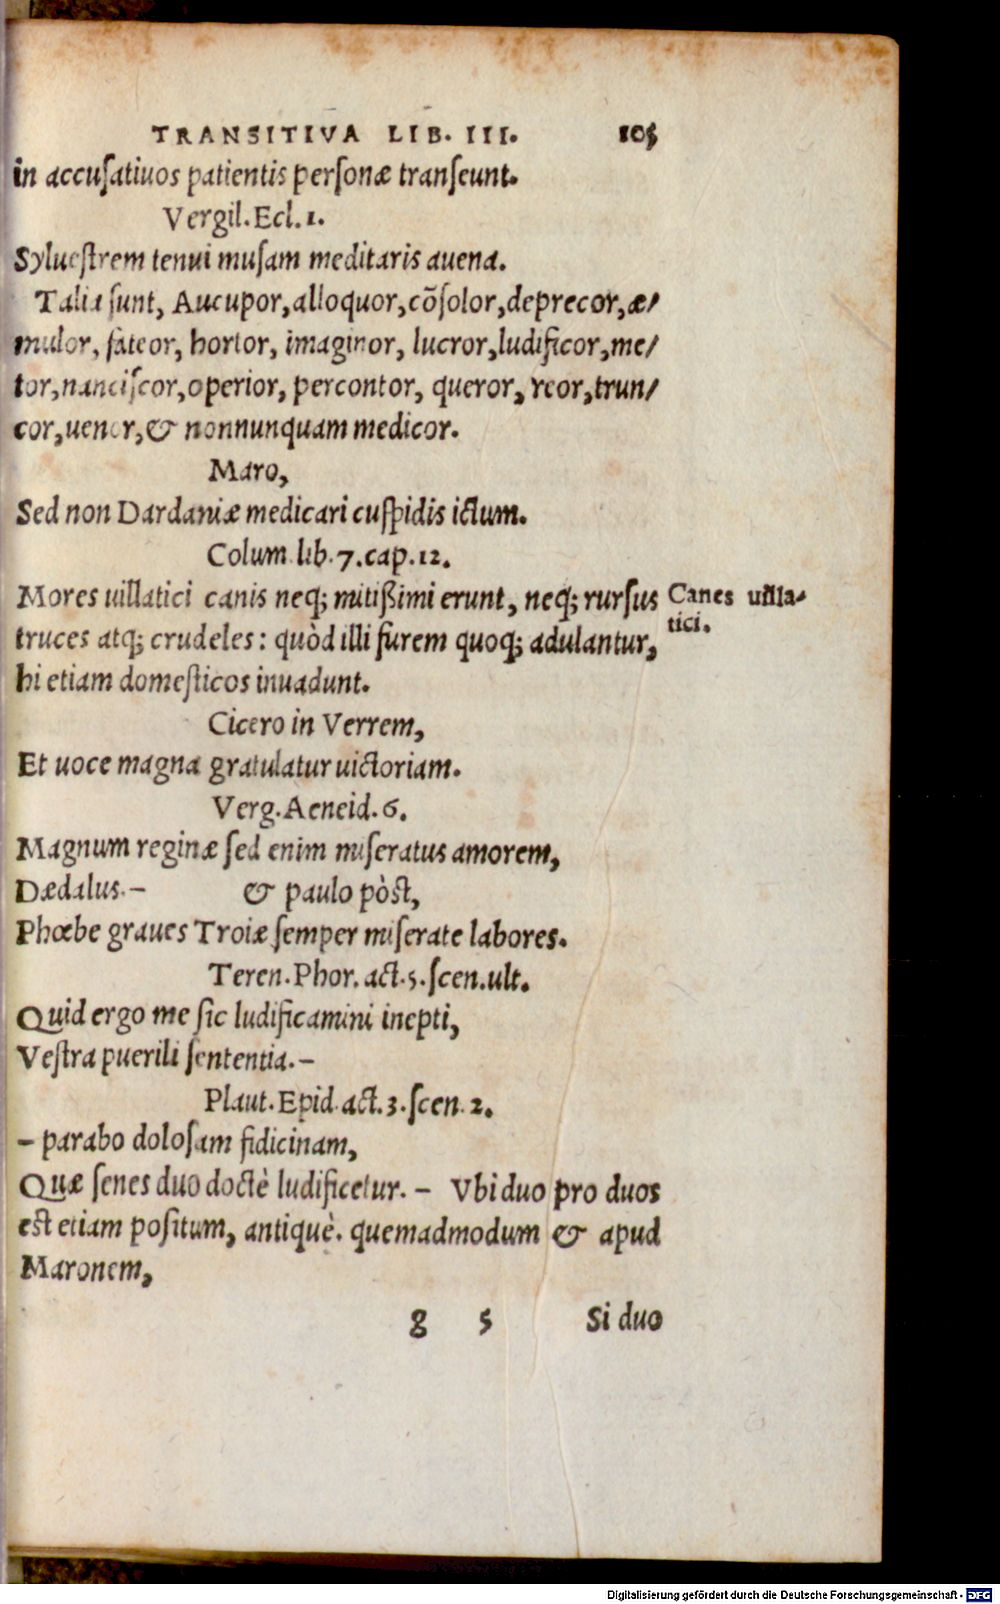 TRANSITIVA LIB. III. 105
in accuſatiuos patientis perſonæ tranſeunt.
Vergil. Ecl. 1.
Sylueſtrem tenui muſam meditaris auena.
Talia ſunt, Aucupor, alloquor, cõſolor, deprecor, æ/
mulor, fateor, hortor, imaginor, lucror, ludificor, me/
tor, nanciſcor, operior, percontor, queror, reor, trun/
cor, uenor, & nonnunquam medicor.
Maro,
Sed non Dardaniæ medicari cuſpidis ictum.
Colum. lib. 7. cap. 12.
Mores uillatici canis neq; mitißimi erunt, neq; rurſus
truces atq; crudeles: quòd illi furem quoq; adulantur,
hi etiam domeſticos inuadunt.
Canes uilla-
tici.
Cicero in Verrem,
Et uoce magna gratulatur uictoriam.
Verg. Aeneid. 6.
Magnum reginæ ſed enim miſeratus amorem,
Dædalus. – & paulo pòſt,
Phœbe graues Troiæ ſemper miſerate labores.
Teren. Phor. act. 5. ſcen. ult.
Quid ergo me ſic ludificamini inepti,
Veſtra puerili ſententia. –
Plaut. Epid. act. 3. ſcen. 2.
– parabo doloſam fidicinam,
Quæ ſenes duo doctè ludificetur. – Vbi duo pro duos
eſt etiam poſitum, antiquè. quemadmodum & apud
Maronem,
g 5 Si duo
Digitalisierung gefördert durch die Deutsche Forschungsgemeinschaft - DFG